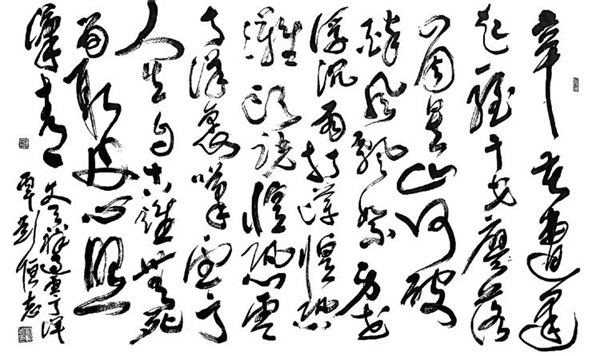 辛苦遭逢
起一经干戈寥落
四周星山河破
碎风飘絮身世
浮沉雨打萍惶恐
滩头说惶恐零
丁洋里叹零丁
人生自古谁无死
留取丹心照
汗青
文天祥过零丁洋